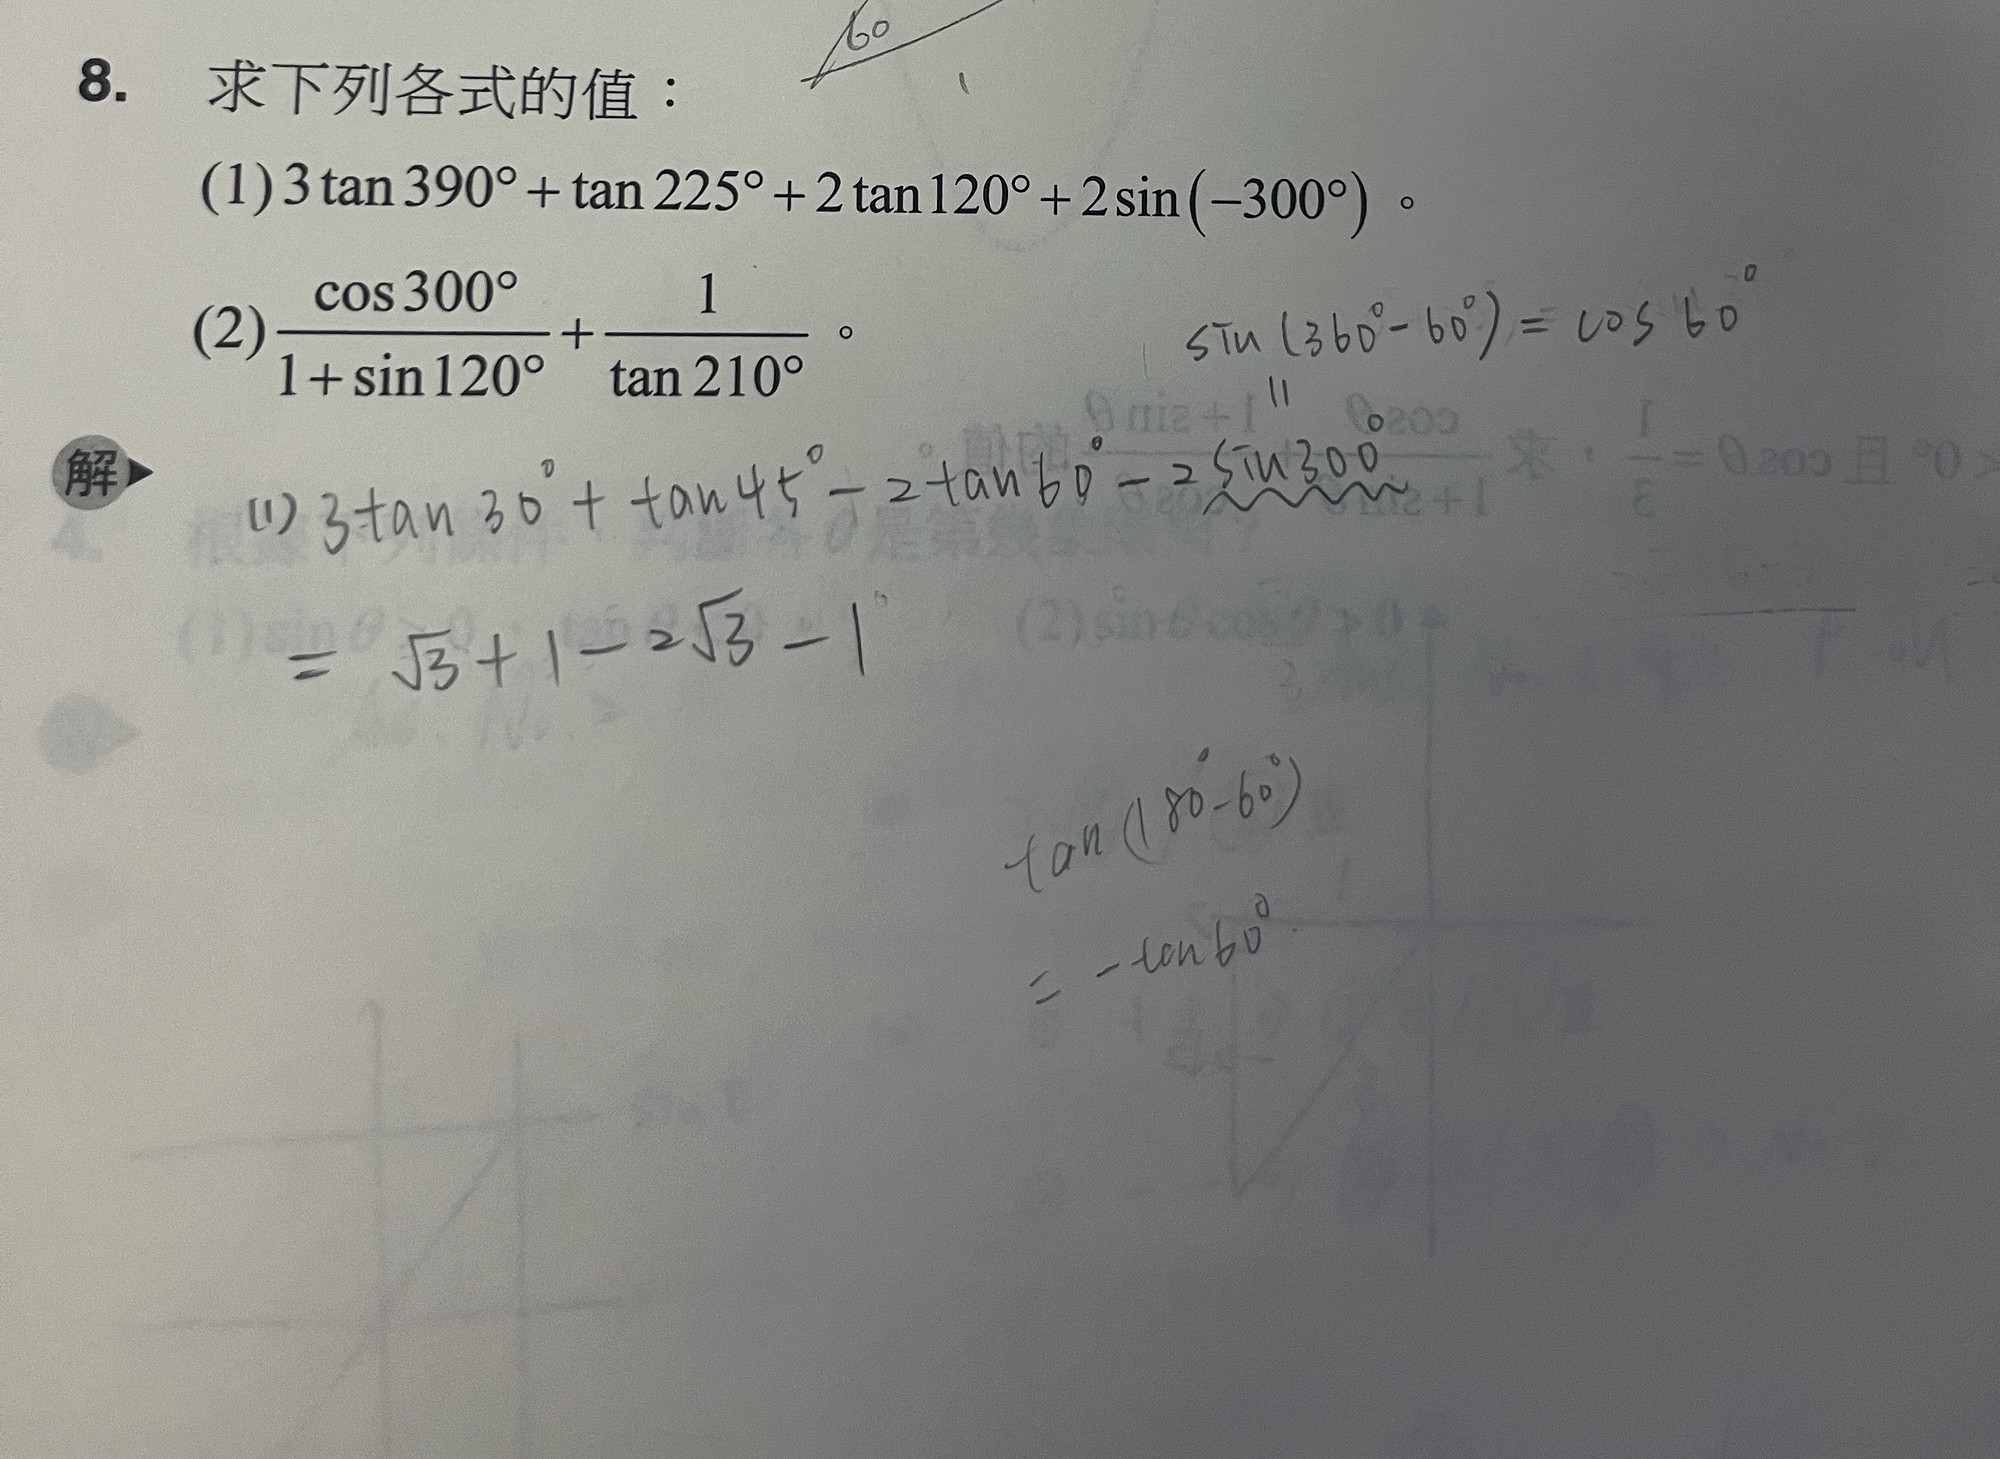 60
1
8. 求下列各式的值：
(1) 3 tan 390° + tan 225° + 2 tan 120° + 2 sin (−300°) 。
(2) cos 300° / (1 + sin 120°) + 1 / tan 210° 。
sin (360° - 60°) = cos 60°
=
解
(1) 3 tan 30° + tan 45° - 2 tan 60° - 2 sin 300°
= √3 + 1 - 2√3 - 1
tan (180° - 60°)
= - tan 60°